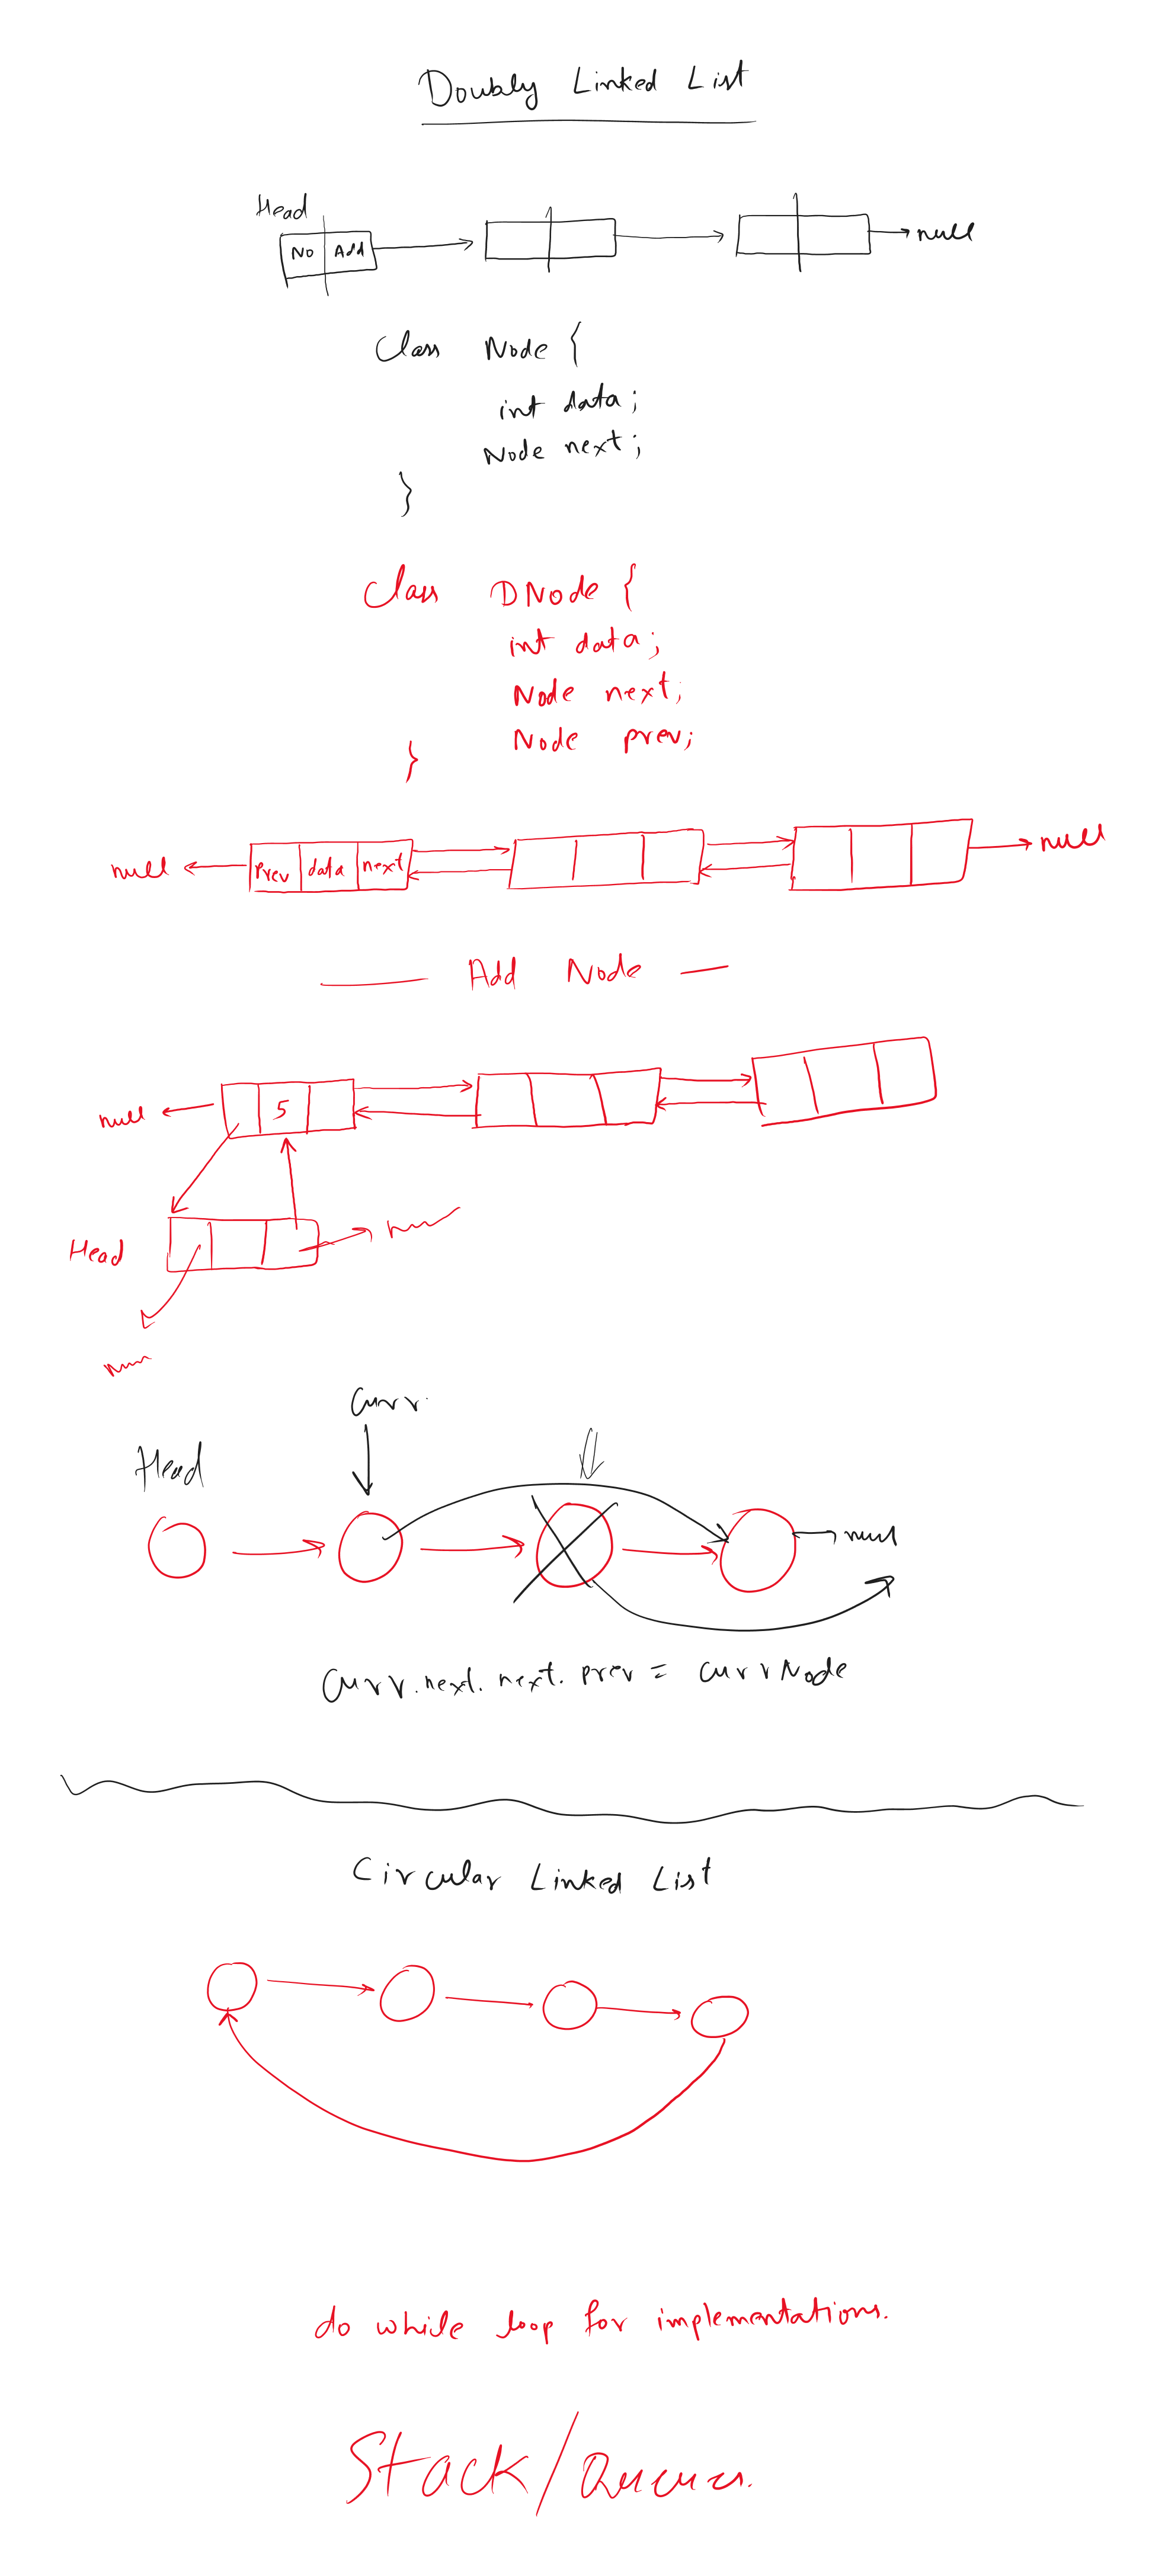 Doubly Linked List
Head
No Add
null
Class Node {
int data;
Node next;
}
Class DNode {
int data;
Node next;
Node prev;
}
null prev data next null
Add Node
null 5
Head
Curr.
Head
null
Curr.next.next.prev = currNode
Circular Linked List
do while loop for implementations.
Stack/Queues.